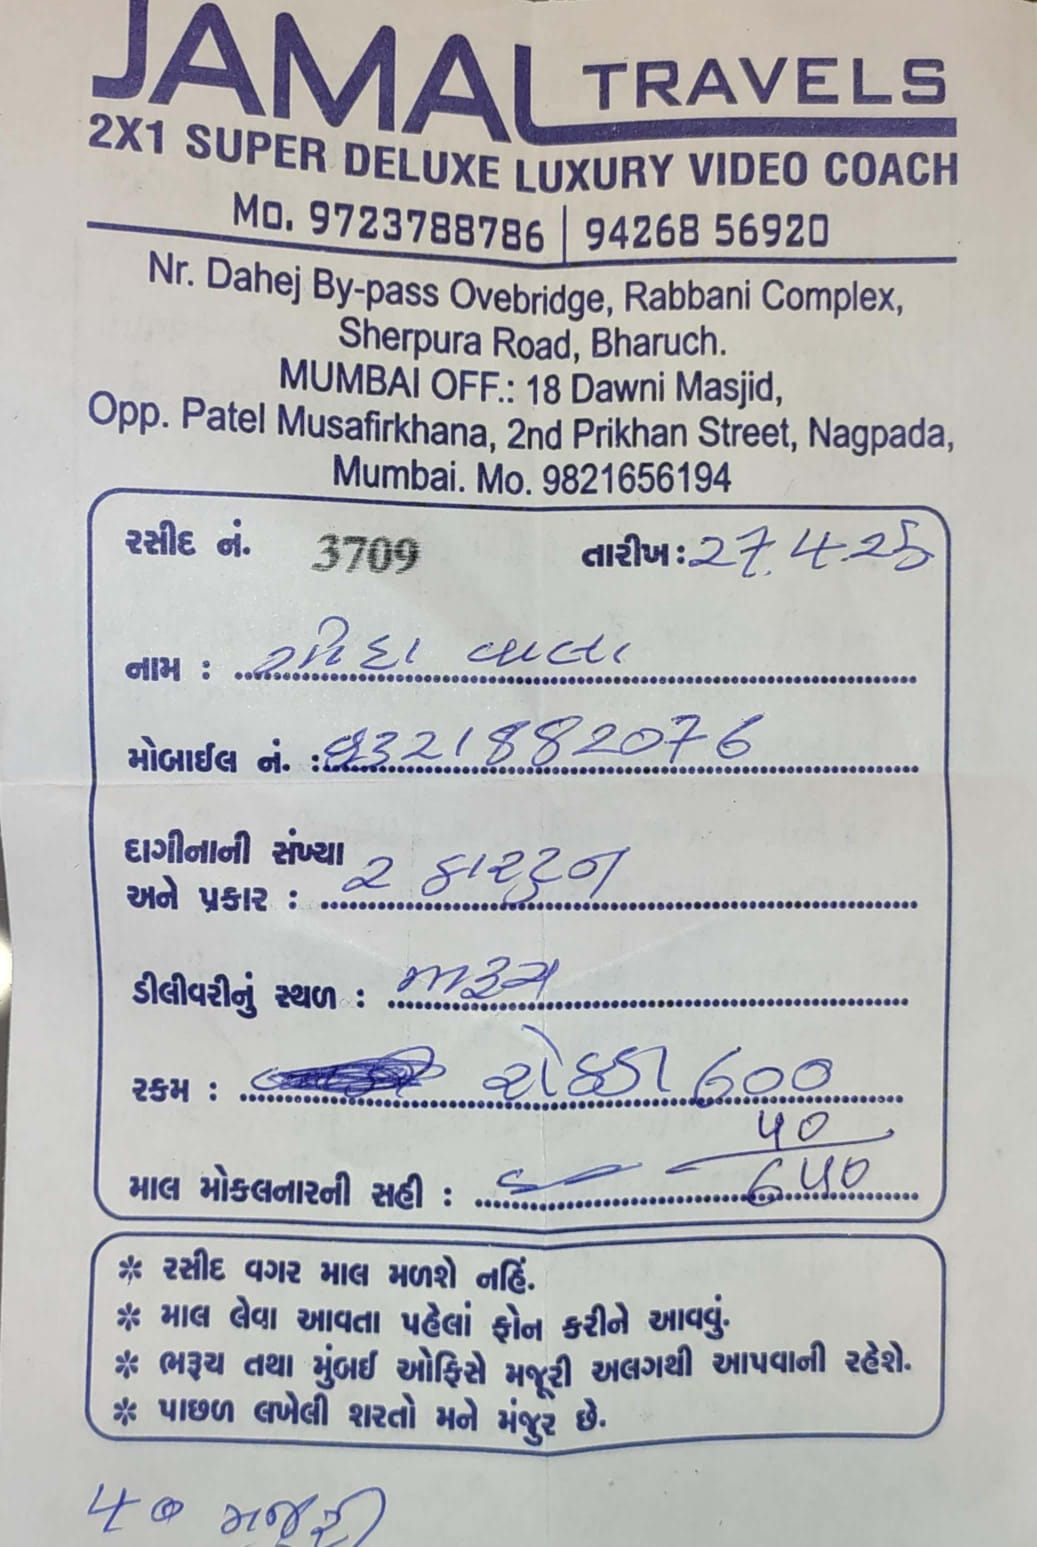 JAMAL TRAVELS
2X1 SUPER DELUXE LUXURY VIDEO COACH
Mo. 9723788786 | 94268 56920
Nr. Dahej By-pass Ovebridge, Rabbani Complex,
Sherpura Road, Bharuch.
MUMBAI OFF.: 18 Dawni Masjid,
Opp. Patel Musafirkhana, 2nd Prikhan Street, Nagpada,
Mumbai. Mo. 9821656194
રસીદ નં. 3709 તારીખ : 27.4.25
નામ :
મોબાઈલ નં. : 9321882076
દાગીનાની સંખ્યા
અને પ્રકાર : ૨ કારટુન
ડીલીવરીનું સ્થળ : ભરૂચ
રકમ : રોકડા ૬૦૦
૫૦
માલ મોકલનારની સહી : ૬૫૦
* રસીદ વગર માલ મળશે નહિં.
* માલ લેવા આવતા પહેલાં ફોન કરીને આવવું.
* ભરૂચ તથા મુંબઈ ઓફિસે મજૂરી અલગથી આપવાની રહેશે.
* પાછળ લખેલી શરતો મને મંજુર છે.
૫૦ મજૂરી